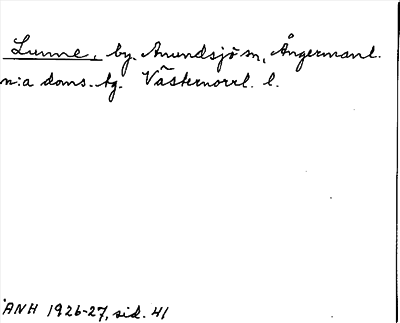 Lunne, by. Anundsjö sn, Ångermanl.
n:a doms.-tg. Västernorrl. l.
ANH 1926-27, sid. 41